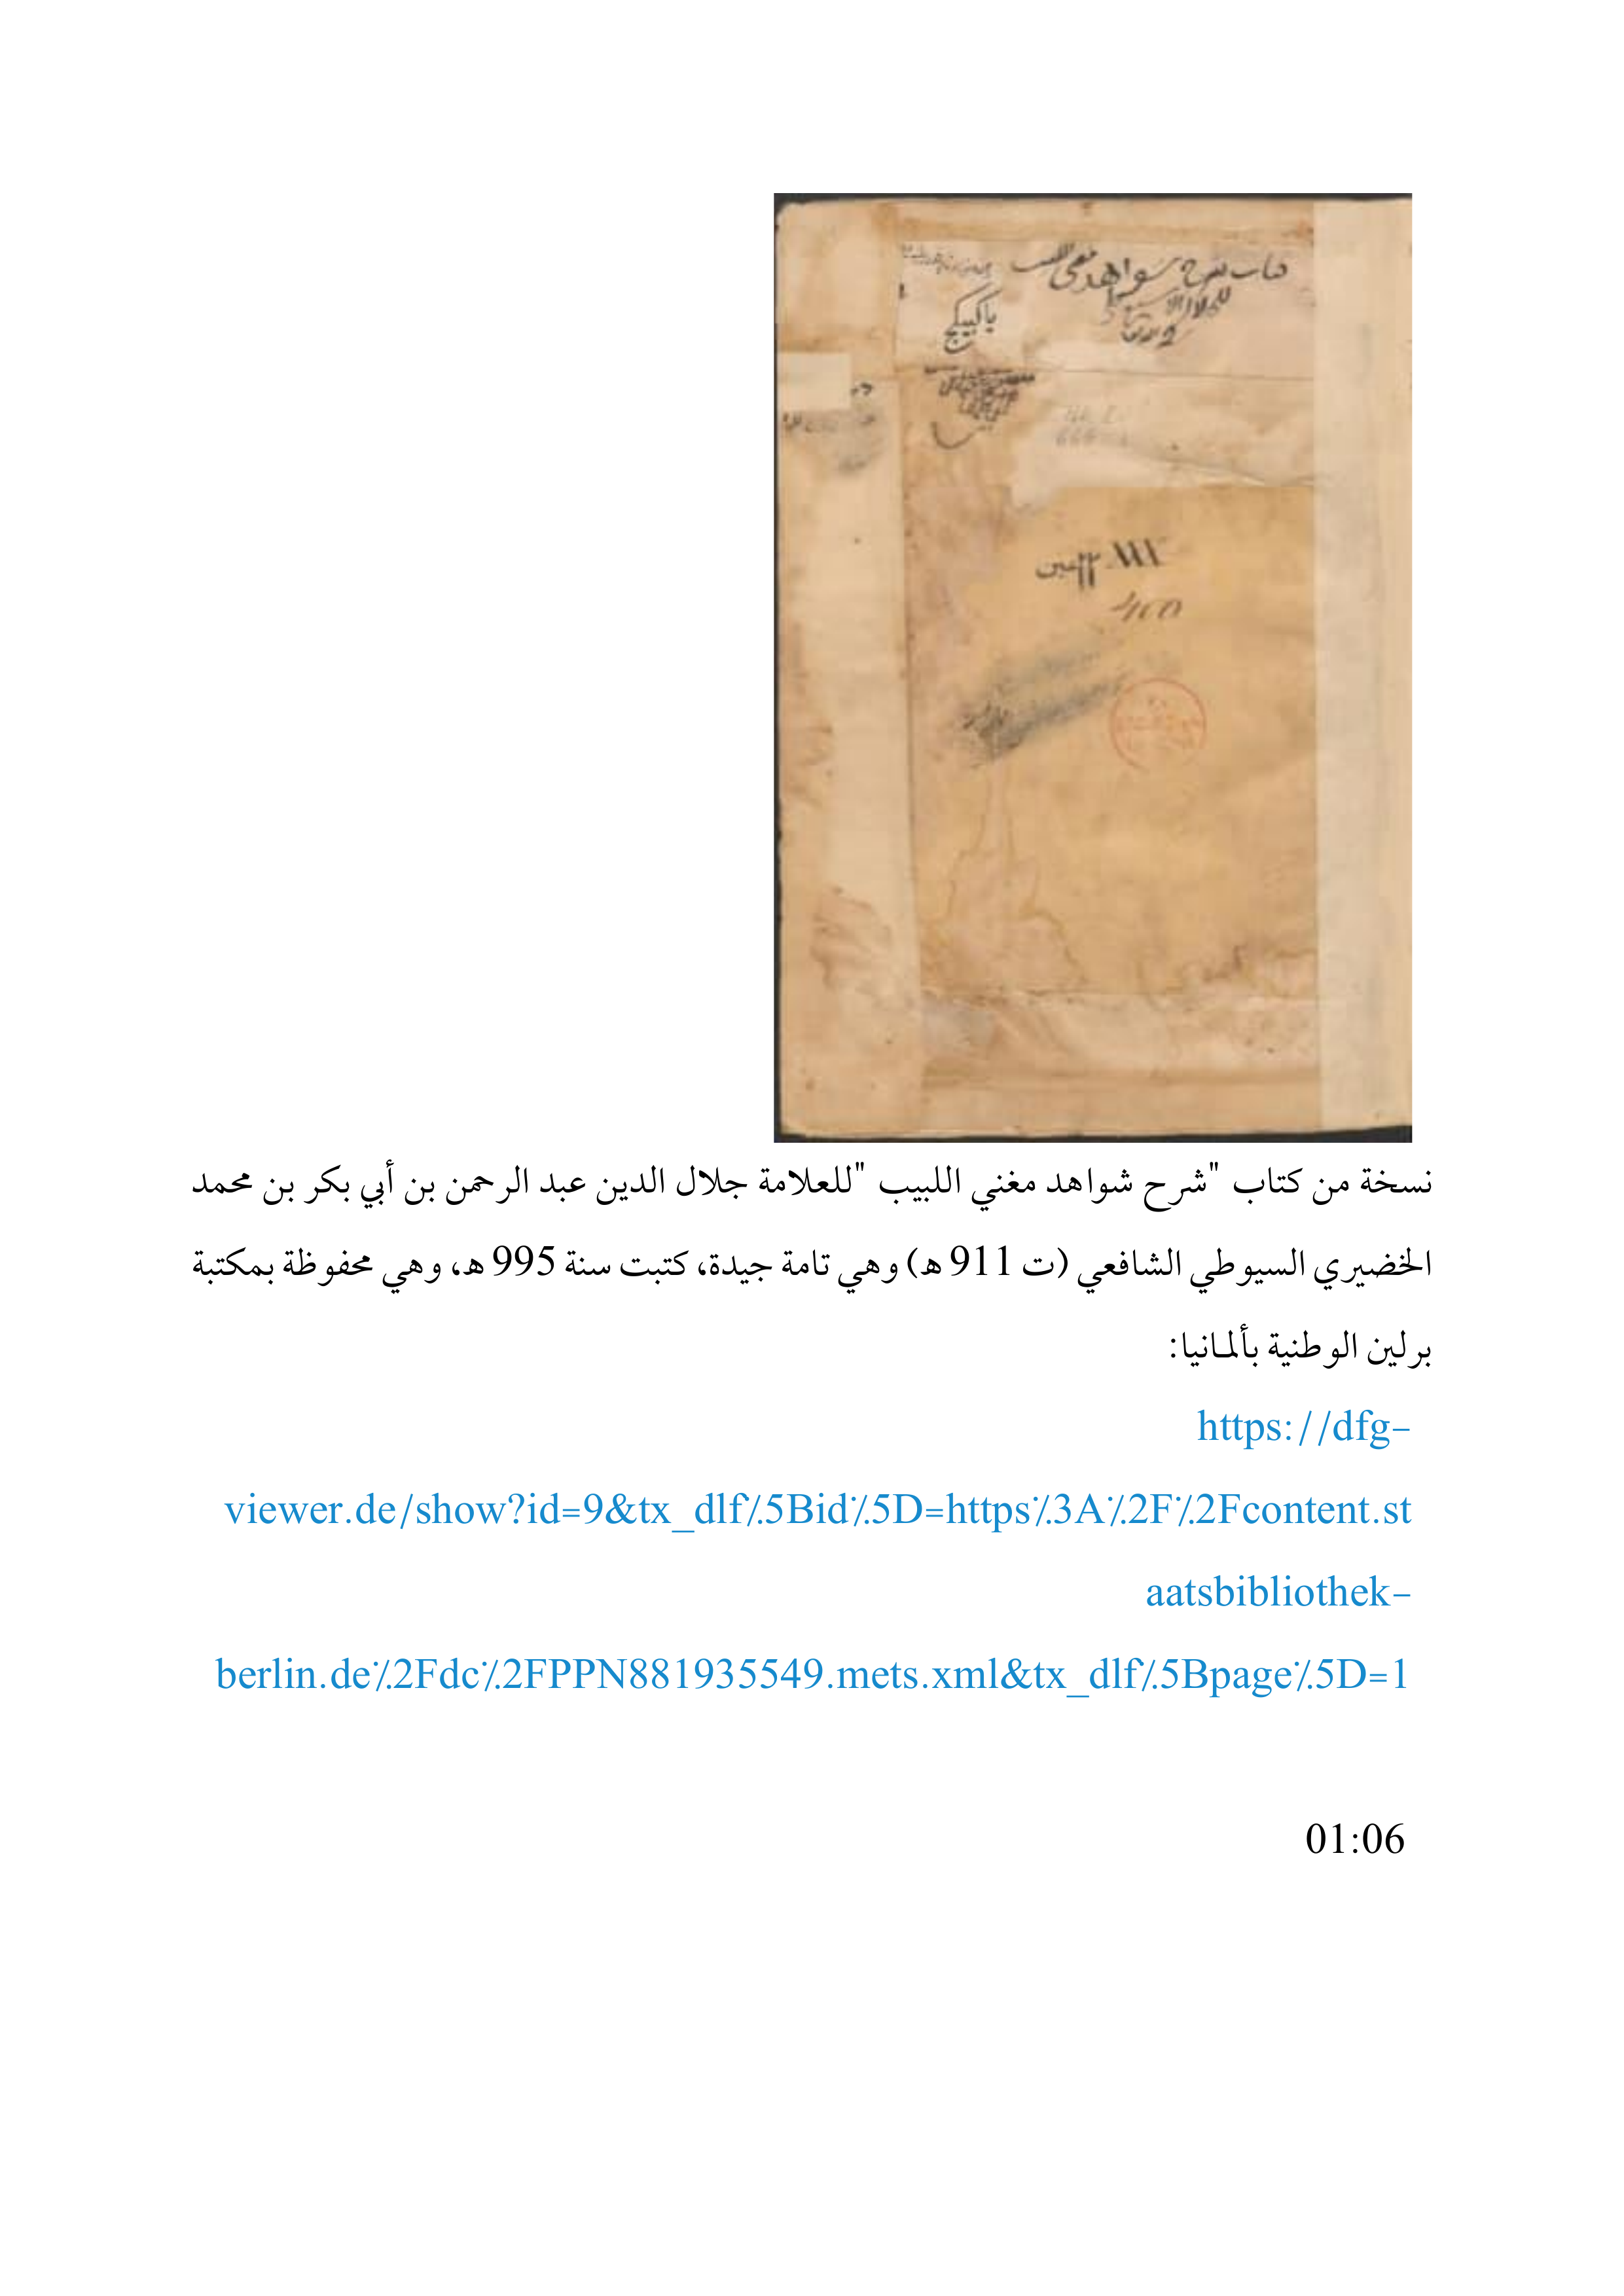 كتاب شرح شواهد مغني اللبيب
للجلال الا سيوطي
ياكبيكج
نسخة من كتاب "شرح شواهد مغني اللبيب "للعلامة جلال الدين عبد الرحمن بن أبي بكر بن محمد
الخضيري السيوطي الشافعي (ت 911 هـ) وهي تامة جيدة، كتبت سنة 995 هـ، وهي محفوظة بمكتبة
برلين الوطنية بألمانيا:
https://dfg-
viewer.de/show?id=9&tx_dlf٪5Bid٪5D=https٪3A٪2F٪2Fcontent.st
aatsbibliothek-
berlin.de٪2Fdc٪2FPPN881935549.mets.xml&tx_dlf٪5Bpage٪5D=1
01:06